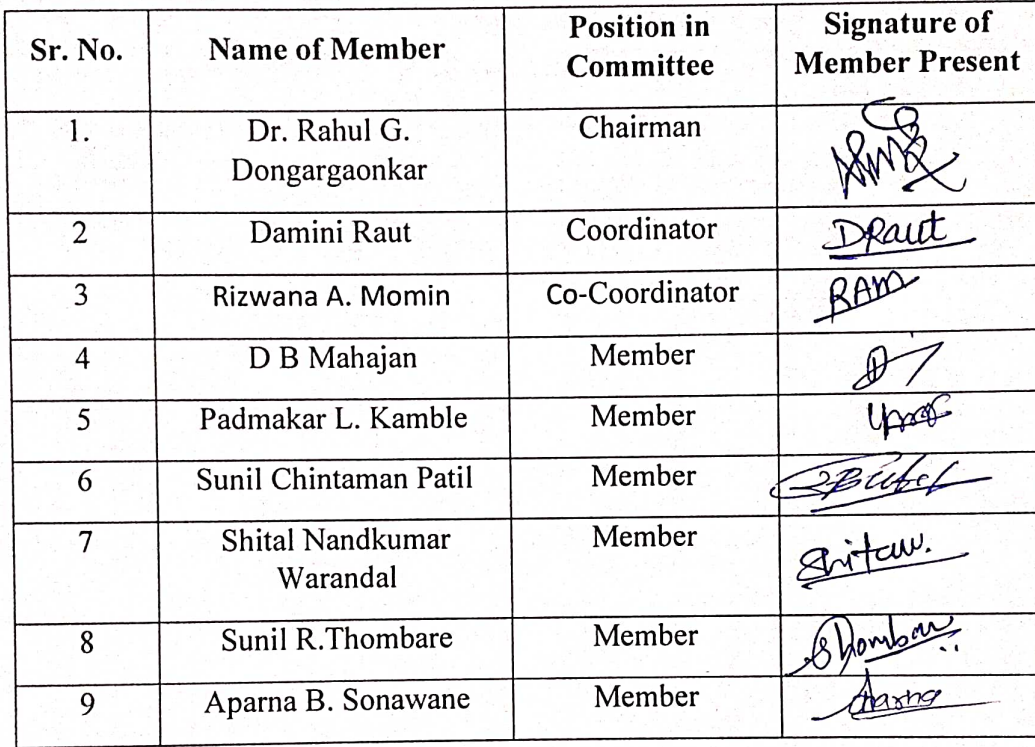 Sr. No. Name of Member Position in Committee Signature of Member Present
1. Dr. Rahul G. Dongargaonkar Chairman
2 Damini Raut Coordinator DRaut
3 Rizwana A. Momin Co-Coordinator RAM
4 D B Mahajan Member
5 Padmakar L. Kamble Member
6 Sunil Chintaman Patil Member
7 Shital Nandkumar Warandal Member
8 Sunil R.Thombare Member
9 Aparna B. Sonawane Member